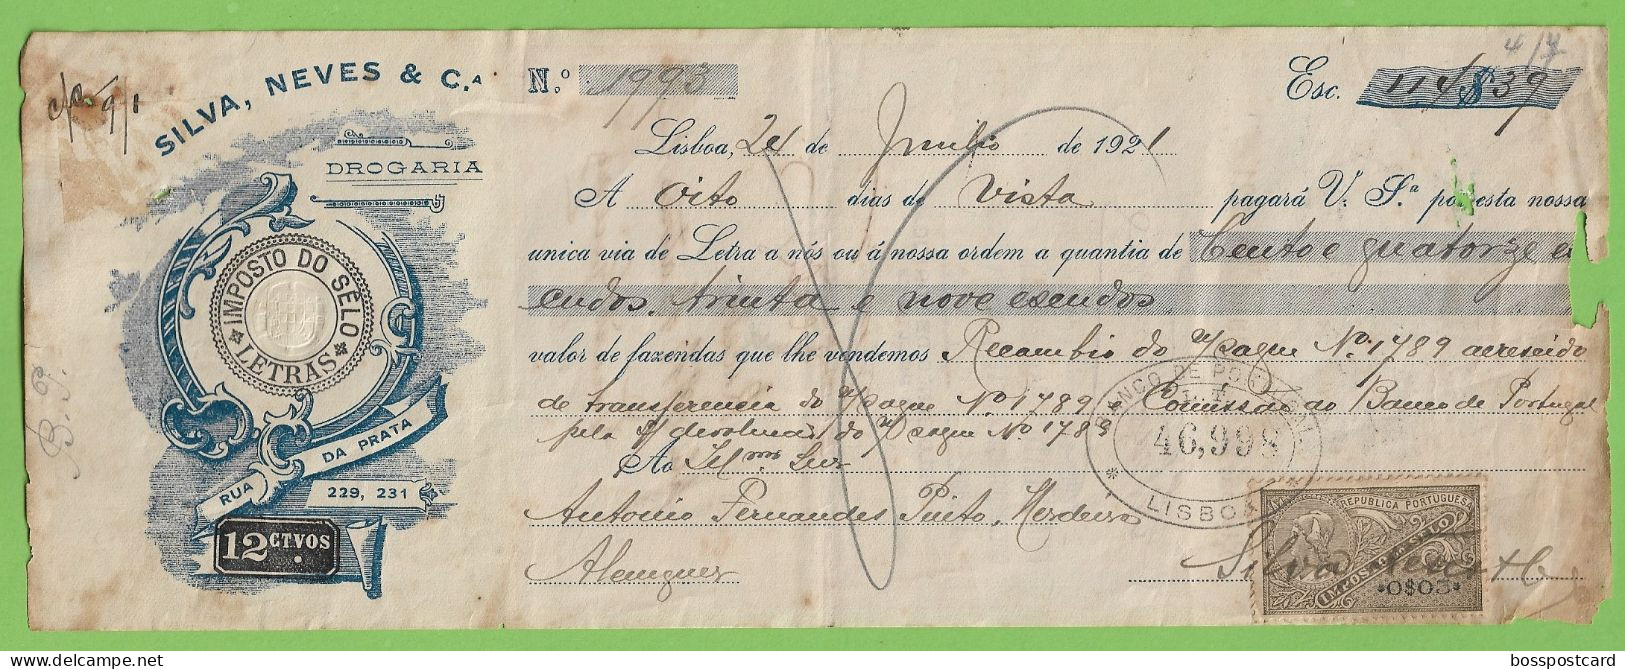 SILVA, NEVES & C.ª
DROGARIA
✻ IMPOSTO DO SÊLO ✻ LETRAS
RUA DA PRATA
229, 231
12 CTVOS
N.º 1993
Esc. 114$39
Lisboa, 24 de Junho de 1921
A Oito dias de Vista pagará V. S.ª por esta nossa
unica via de Letra a nós ou á nossa ordem a quantia de Cento e quatorze es
cudos, trinta e nove escudos
valor de fazendas que lhe vendemos Recambio do N/ Saque Nº 1789 acrescido
de transferencia do N/ Saque Nº 1789 Comissão ao Banco de Portugal
pela devolução do N/ Saque Nº 1789
Ao Ilmº Snr
Antonio Fernandes Pinto, Merdeiro
Alemquer
BANCO DE PORTUGAL
46,998
✻ LISBOA
REPUBLICA PORTUGUESA
IMPOSTO DO SELO
0$03
Silva Neves & Cª
bosspostcard